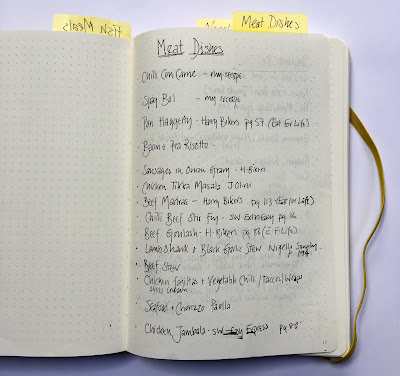 Fish Meals
Meat Dishes
Meat Dishes
Chilli Con Carne - my recipe
Spag Bol - my recipe
Pan Haggerty - Hairy Bikers pg 57 (Eat for Life) -
Bacon & Pea Risotto -
Sausages in Onion Gravy - H-Bikers
Chicken Tikka Masala J Oliver
Beef Madras - Hairy Bikers pg 113 (Eat for Life)
Chilli Beef Stir Fry - SW pg
Beef Goulash - H-Bikers pg (E F Life)
Lamb Shank & Black Garlic Stew Nigella
P
Beef Stew
Chicken Fajitas & Vegetable Chilli / Tacos / Wraps
Seafood & Chorizo Paella
Chicken Jambala - SW Express pg 80